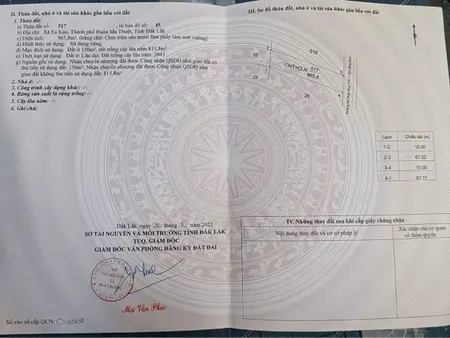 II. Thửa đất, nhà ở và tài sản khác gắn liền với đất
1. Thửa đất:
a) Thửa đất số: 517 , tờ bản đồ số: 45
b) Địa chỉ: Xã Ea Kao, Thành phố Buôn Ma Thuột, Tỉnh Đắk Lắk
c) Diện tích: 965,8m², (bằng chữ: Chín trăm sáu mươi lăm phẩy tám mét vuông)
d) Hình thức sử dụng: Sử dụng riêng
đ) Mục đích sử dụng: Đất ở 150m²; Đất trồng cây lâu năm 815,8m²
e) Thời hạn sử dụng: Đất ở: Lâu dài; Đất trồng cây lâu năm: 2043
g) Nguồn gốc sử dụng: Nhận chuyển nhượng đất được Công nhận QSDĐ như giao đất có
thu tiền sử dụng đất: 150m²; Nhận chuyển nhượng đất được Công nhận QSDĐ như
giao đất không thu tiền sử dụng đất: 815,8m²
2. Nhà ở: -/-
3. Công trình xây dựng khác: -/-
4. Rừng sản xuất là rừng trồng: -/-
5. Cây lâu năm: -/-
6. Ghi chú:
Đắk Lắk, ngày 20 tháng , năm 2022
SỞ TÀI NGUYÊN VÀ MÔI TRƯỜNG TỈNH ĐẮK LẮK
TUQ. GIÁM ĐỐC
GIÁM ĐỐC VĂN PHÒNG ĐĂNG KÝ ĐẤT ĐAI
Mai Văn Phúc
Số vào sổ cấp GCN:
III. Sơ đồ thửa đất, nhà ở và tài sản khác gắn liền với đất
518
16
ONT+CLN
517
965.8
25
25
Cạnh Chiều dài (m)
1-2 15.00
2-3 67.02
3-4 15.00
4-1 67.11
IV. Những thay đổi sau khi cấp giấy chứng nhận
Nội dung thay đổi và cơ sở pháp lý
Xác nhận của cơ quan
có thẩm quyền